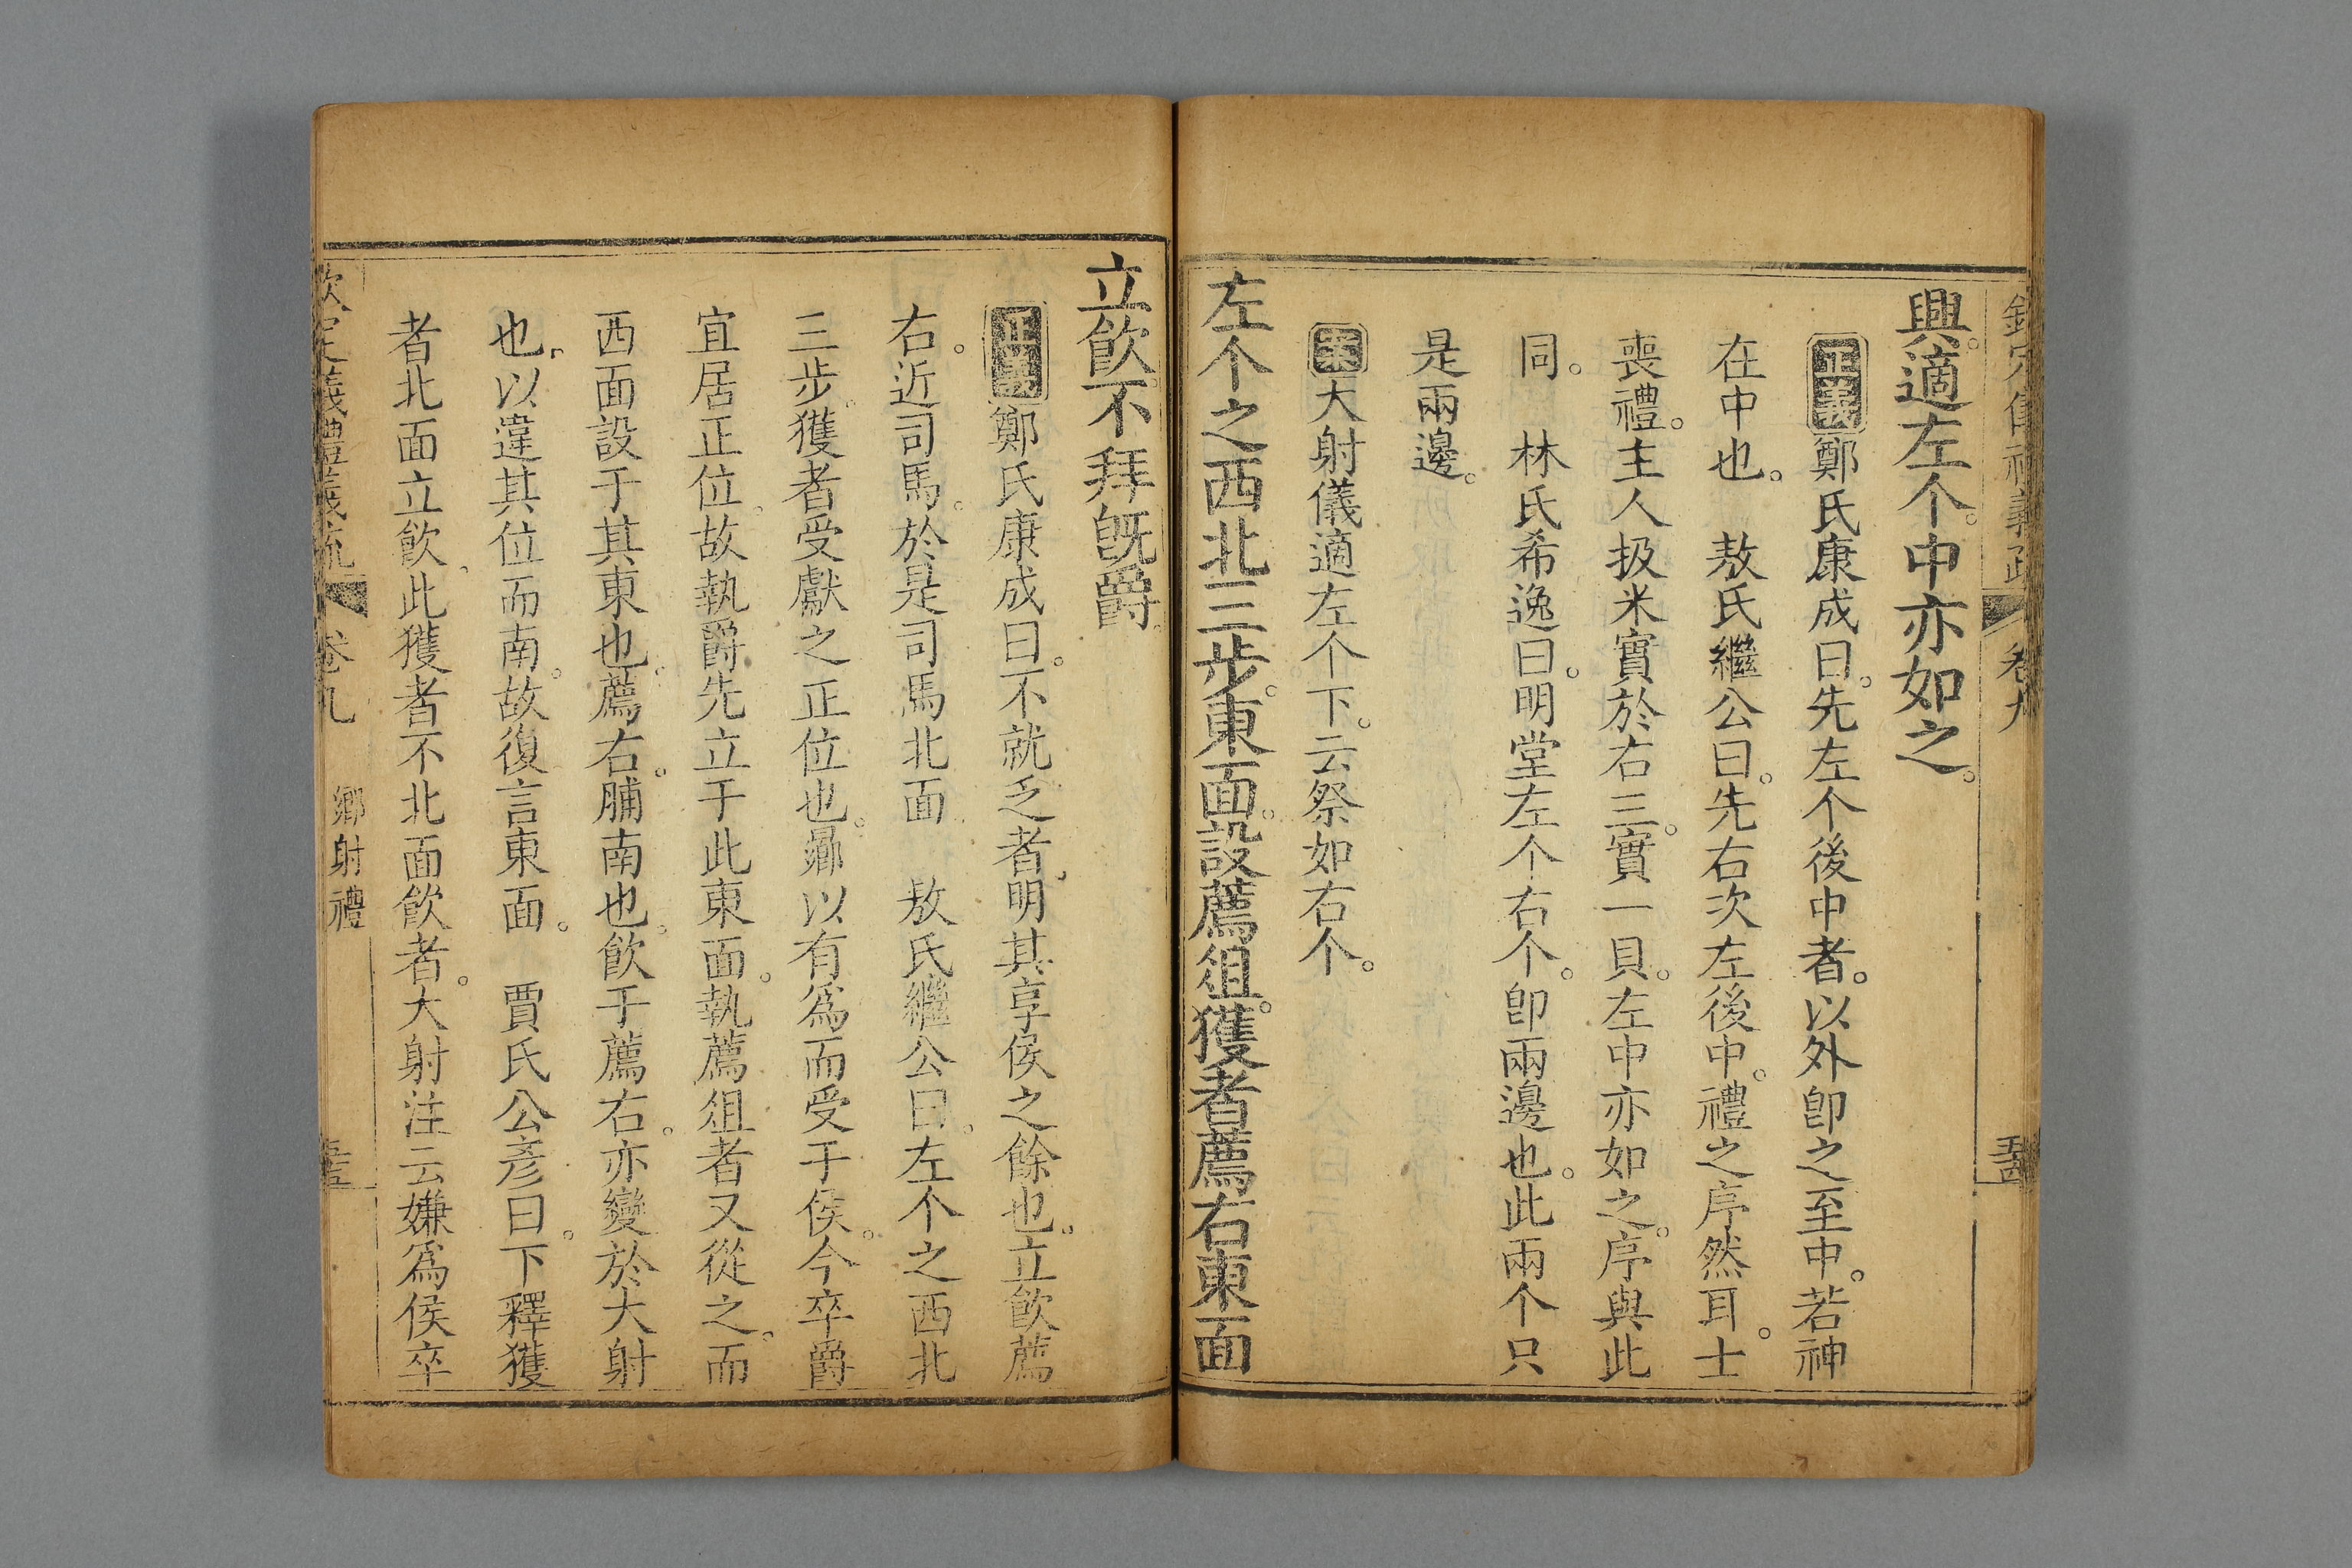 欽定儀禮義疏 卷九
興。適左个。中亦如之。
正義鄭氏康成曰。先左个後中者。以外卽之至中。若神
在中也。 敖氏繼公曰。先右次左後中。禮之序然耳。士
喪禮。主人扱米實於右三。實一貝。左中亦如之。序與此
同。 林氏希逸曰。明堂左个右个。卽兩邊也。此兩个只
是兩邊。
案大射儀適左个下。云祭如右个。
左个之西北三步。東面。設薦俎。獲者薦右東面
立飮。不拜旣爵。
正義鄭氏康成曰。不就乏者。明其享侯之餘也。立飮薦
右。近司馬。於是司馬北面 敖氏繼公曰。左个之西北
三步。獲者受獻之正位也。鄕以有爲而受于侯。今卒爵
宜居正位。故執爵先立于此東面。執薦俎者又從之。而
西面設于其東也。薦右。脯南也。飮于薦右。亦變於大射
也。以違其位而南。故復言東面。 賈氏公彥曰。下釋獲
者北面立飮。此獲者不北面飮者。大射注云嫌爲侯卒
欽定儀禮義疏 卷九 鄕射禮